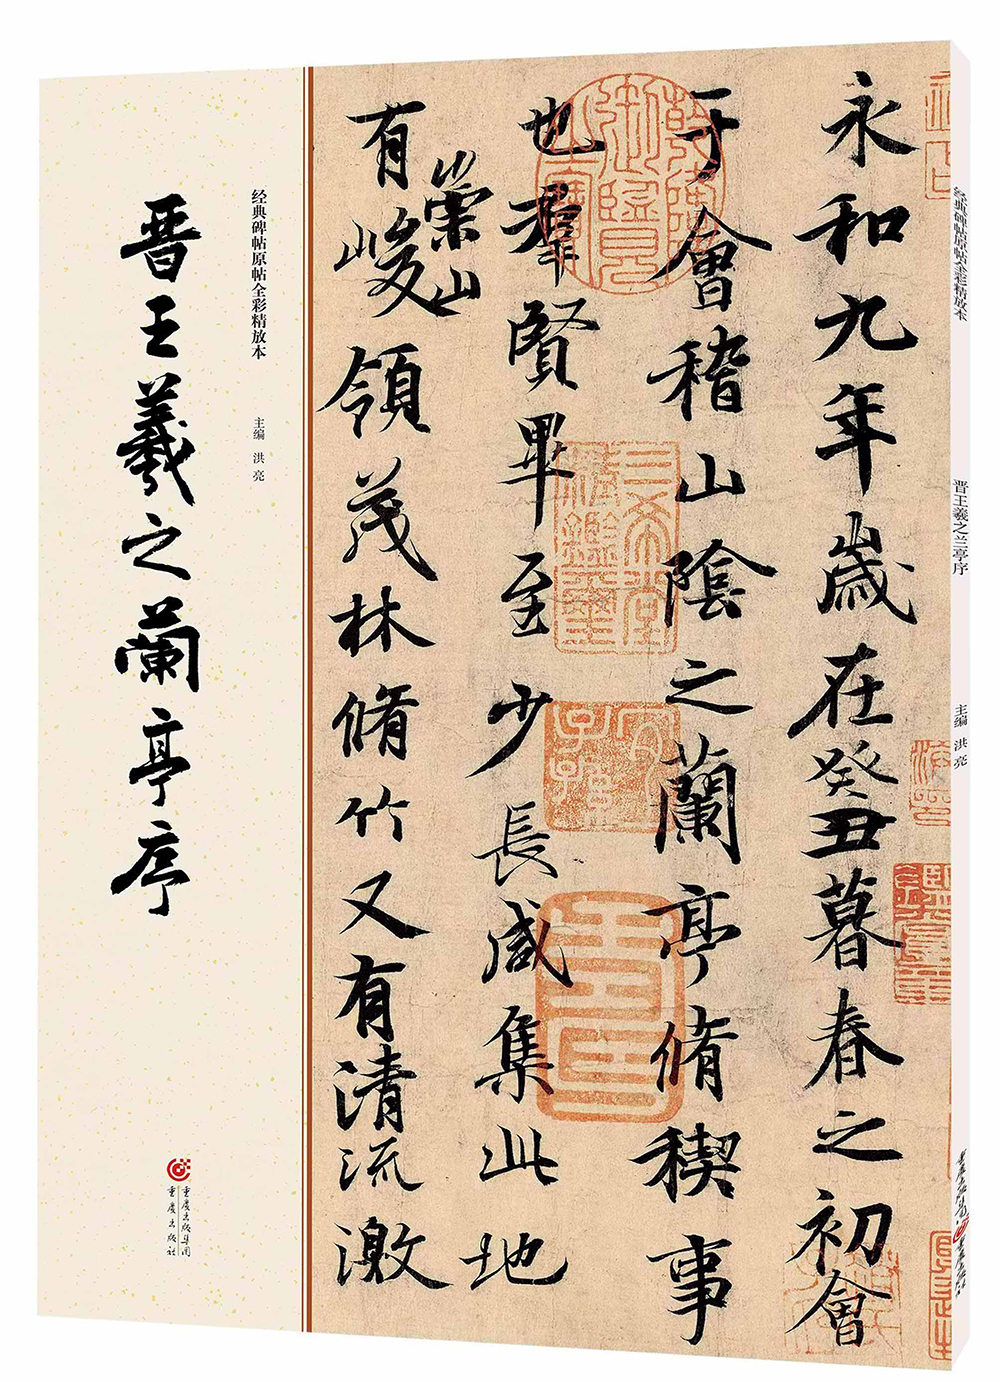 永和九年歲在癸丑暮春之初會
于會稽山陰之蘭亭脩稧事
也羣賢畢至少長咸集此地
有崇山峻領茂林脩竹又有清流激
三希堂精鑑璽
宜子孫
经典碑帖原帖全彩精放本
主编 洪亮
晋王羲之蘭亭序
重庆出版集团
重庆出版社
经典碑帖原帖全彩精放本
晋王羲之兰亭序
主编 洪亮
重庆出版集团
重庆出版社